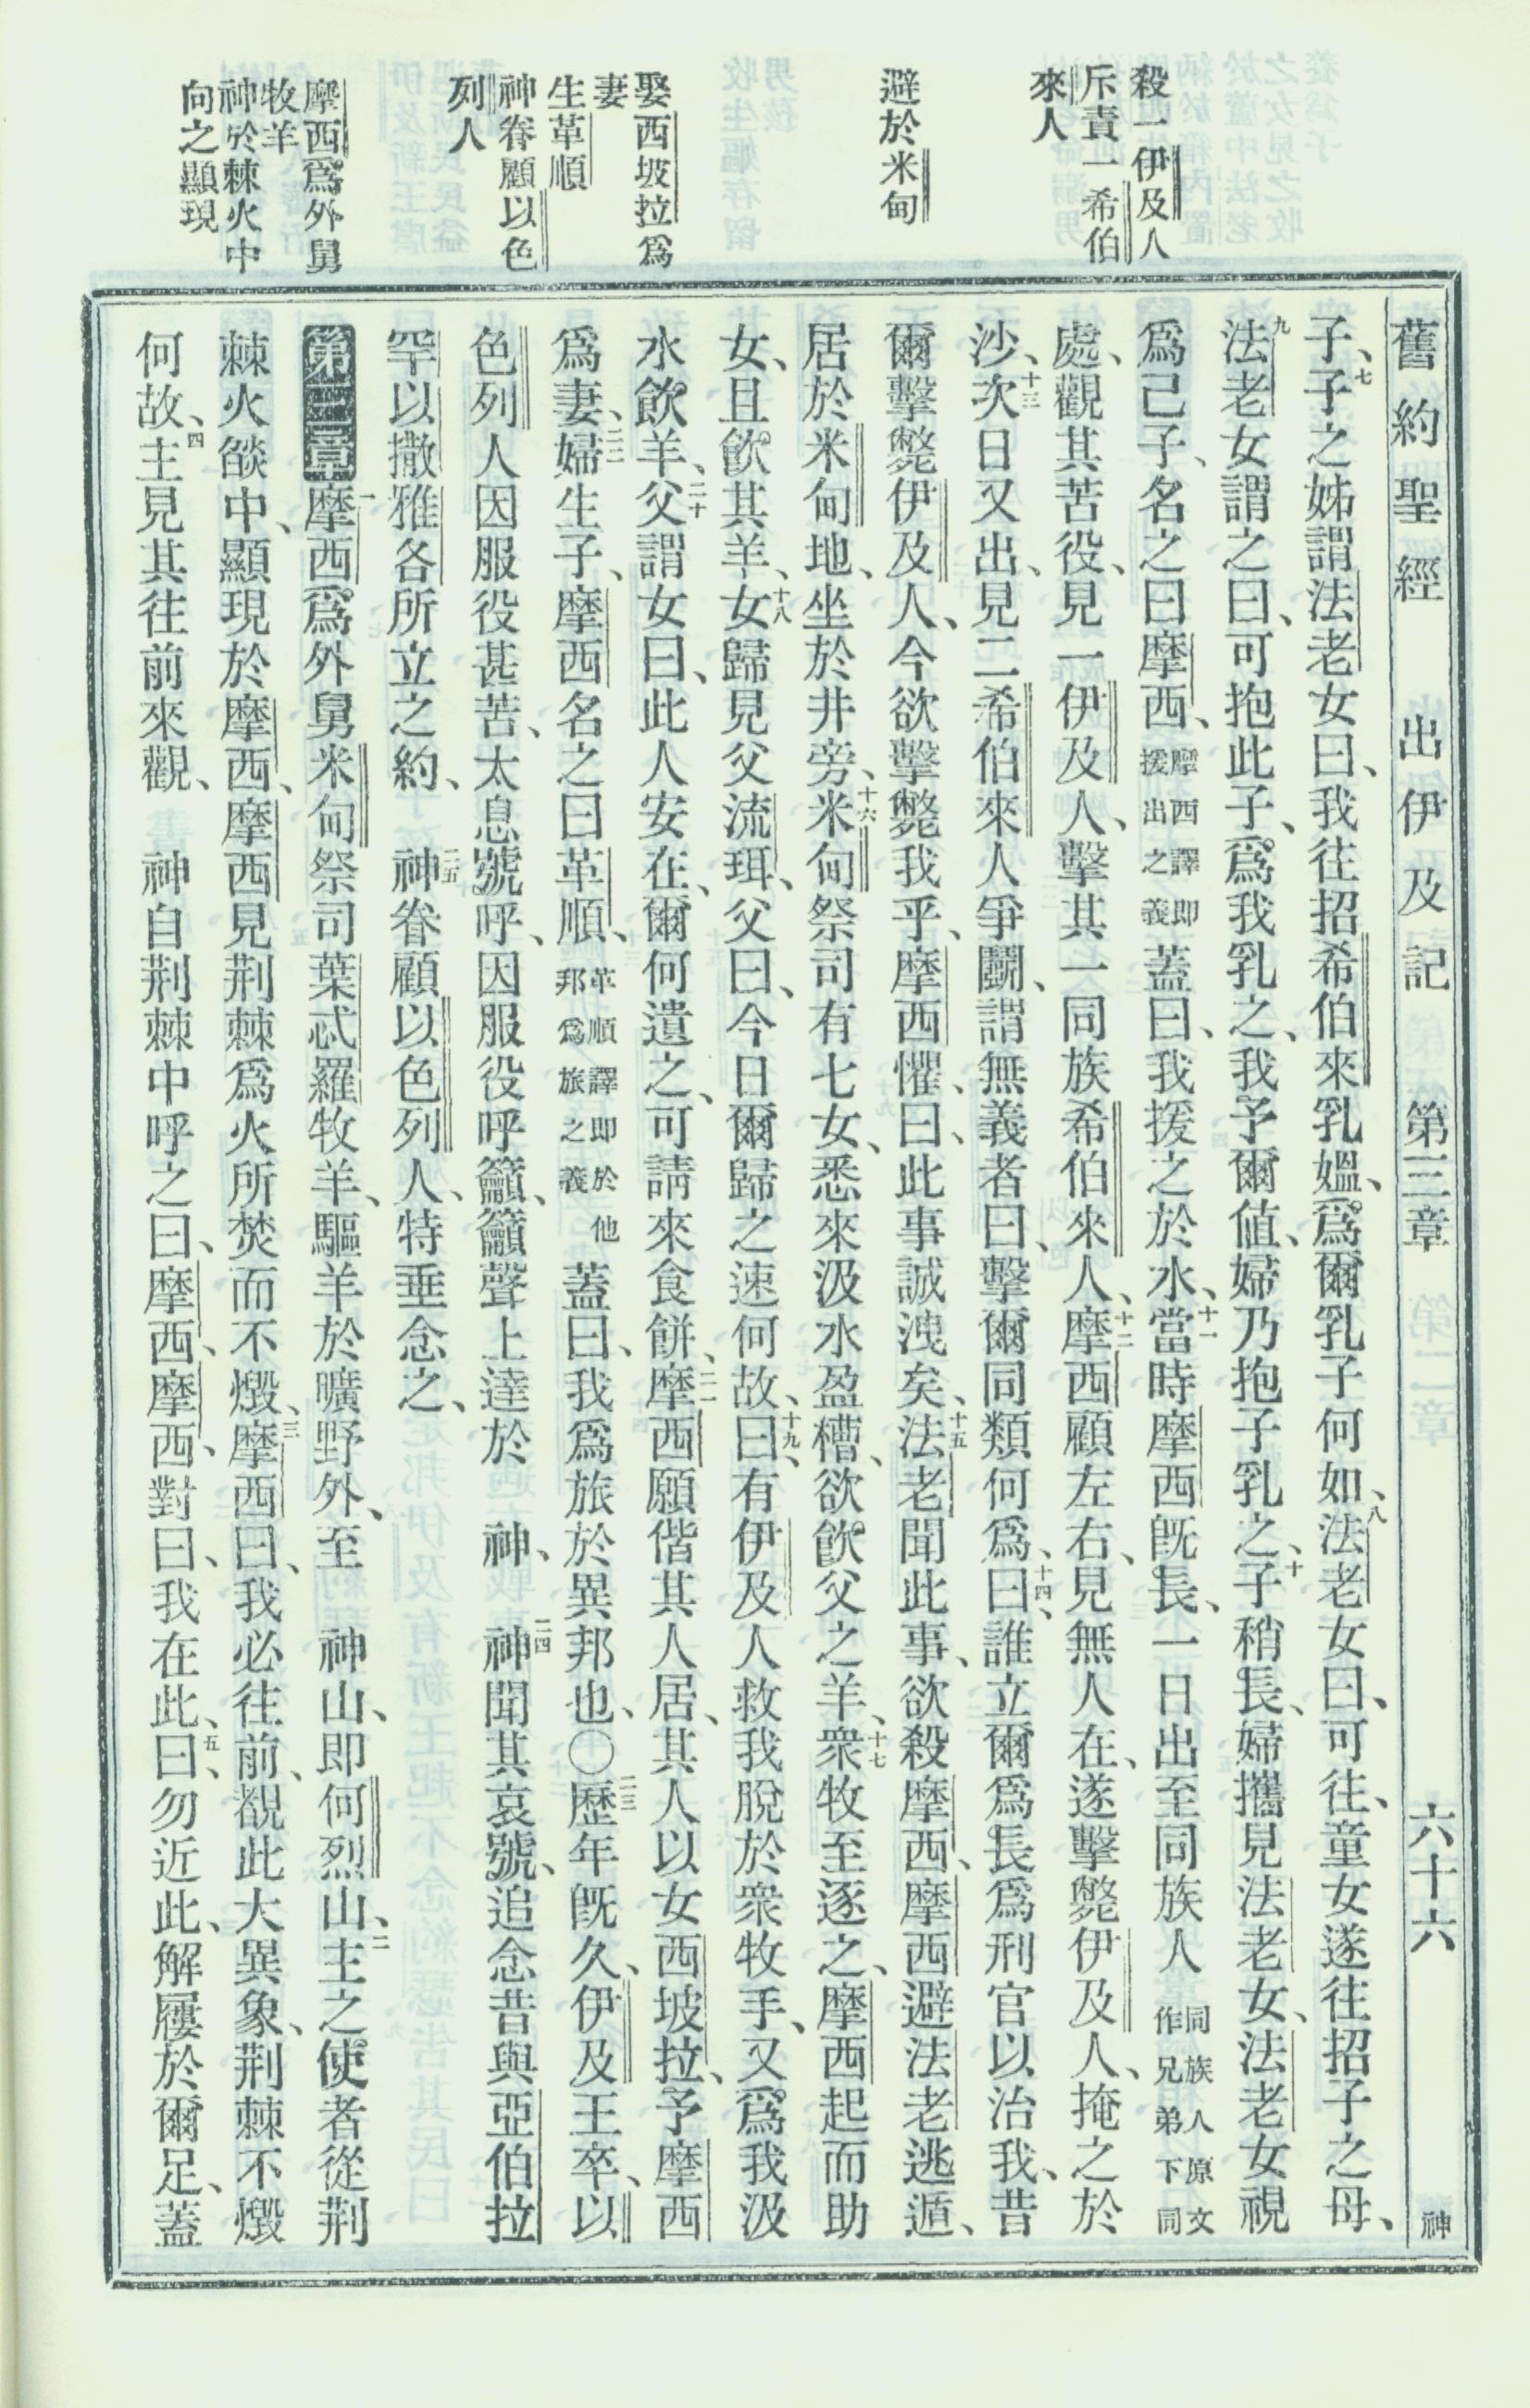 殺一伊及人
斥責一希伯
來人
避於米甸
娶西坡拉爲
妻
生革順
神眷顧以色
列人
摩西爲外舅
牧羊
神於棘火中
向之顯現
舊約聖經 出伊及記 第三章 六十六 神
子、七子之姊謂法老女曰、我往招希伯來乳媼、爲爾乳子何如、八法老女曰、可往、童女遂往招子之母、
九法老女謂之曰、可抱此子、爲我乳之、我予爾値、婦乃抱子乳之、十子稍長、婦攜見法老女、法老女視
爲己子、名之曰摩西、摩西譯即援出之義蓋曰、我援之於水、十一當時摩西旣長、一日出至同族人同族人原文作兄弟下同
處、觀其苦役、見一伊及人、擊其一同族希伯來人、十二摩西顧左右、見無人在、遂擊斃伊及人、掩之於
沙、十三次日又出、見二希伯來人爭鬭、謂無義者曰、擊爾同類何爲、十四曰、誰立爾爲長爲刑官以治我、昔
爾擊斃伊及人、今欲擊斃我乎、摩西懼、曰、此事誠洩矣、十五法老聞此事、欲殺摩西、摩西避法老逃遁、
居於米甸地、坐於井旁、十六米甸祭司有七女、悉來汲水盈槽、欲飮父之羊、十七衆牧至逐之、摩西起而助
女、且飮其羊、十八女歸見父流珥、父曰、今日爾歸之速何故、十九曰、有伊及人救我脫於衆牧手、又爲我汲
水飮羊、二十父謂女曰、此人安在、爾何遺之、可請來食餅、二一摩西願偕其人居、其人以女西坡拉、予摩西
爲妻、二二婦生子、摩西名之曰革順、革順譯即於他邦爲旅之義蓋曰、我爲旅於異邦也、〇二三歷年旣久、伊及王卒、以
色列人因服役甚苦、太息號呼、因服役呼籲、籲聲上達於 神、 二四神聞其哀號、追念昔與亞伯拉
罕以撒雅各所立之約、 二五神眷顧以色列人、特垂念之、
第三章一摩西爲外舅米甸祭司葉忒羅牧羊、驅羊於曠野外、至 神山、即何烈山、二主之使者從荆
棘火燄中、顯現於摩西、摩西見荆棘爲火所焚而不燬、三摩西曰、我必往前、覩此大異象、荆棘不燬
何故、四主見其往前來觀、 神自荆棘中呼之曰、摩西、摩西、對曰、我在此、五曰、勿近此、解屨於爾足、蓋